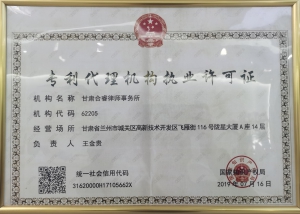 专利代理机构执业许可证
机构名称 甘肃合睿律师事务所
机构代码 62205
经营场所 甘肃省兰州市城关区高新技术开发区飞雁街116号陇星大厦A座14层
负责人 王金贵
统一社会信用代码
31620000H17105662X
国家知识产权局
2019年 月16日